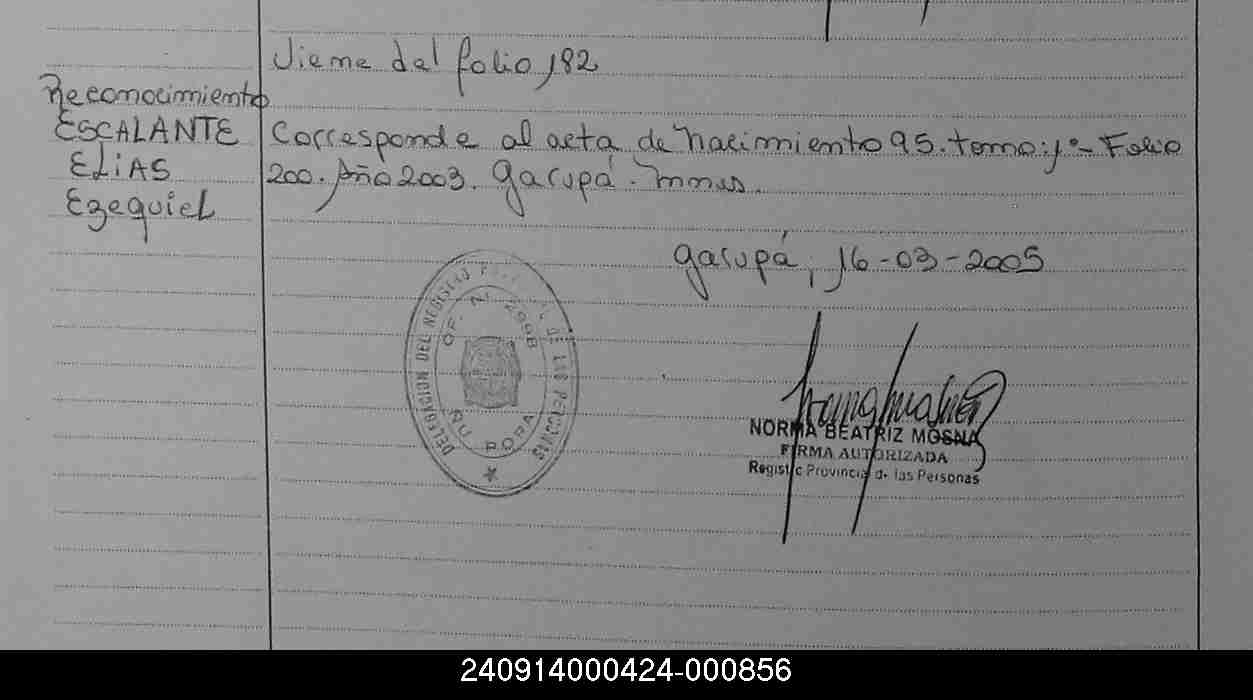 Viene del folio 182
Reconocimiento
ESCALANTE Corresponde al acta de nacimiento 95. tomo: 1º - Folio
ELIAS 200. Año 2003. Garupá. Mnes.
Ezequiel
Garupá, 16-03-2005
DELEGACION DEL REGISTRO DE LAS PERSONAS
OF. Nº 2998
ÑU PORA
NORMA BEATRIZ MOSNA
FIRMA AUTORIZADA
Registro Provincial de las Personas
240914000424-000856